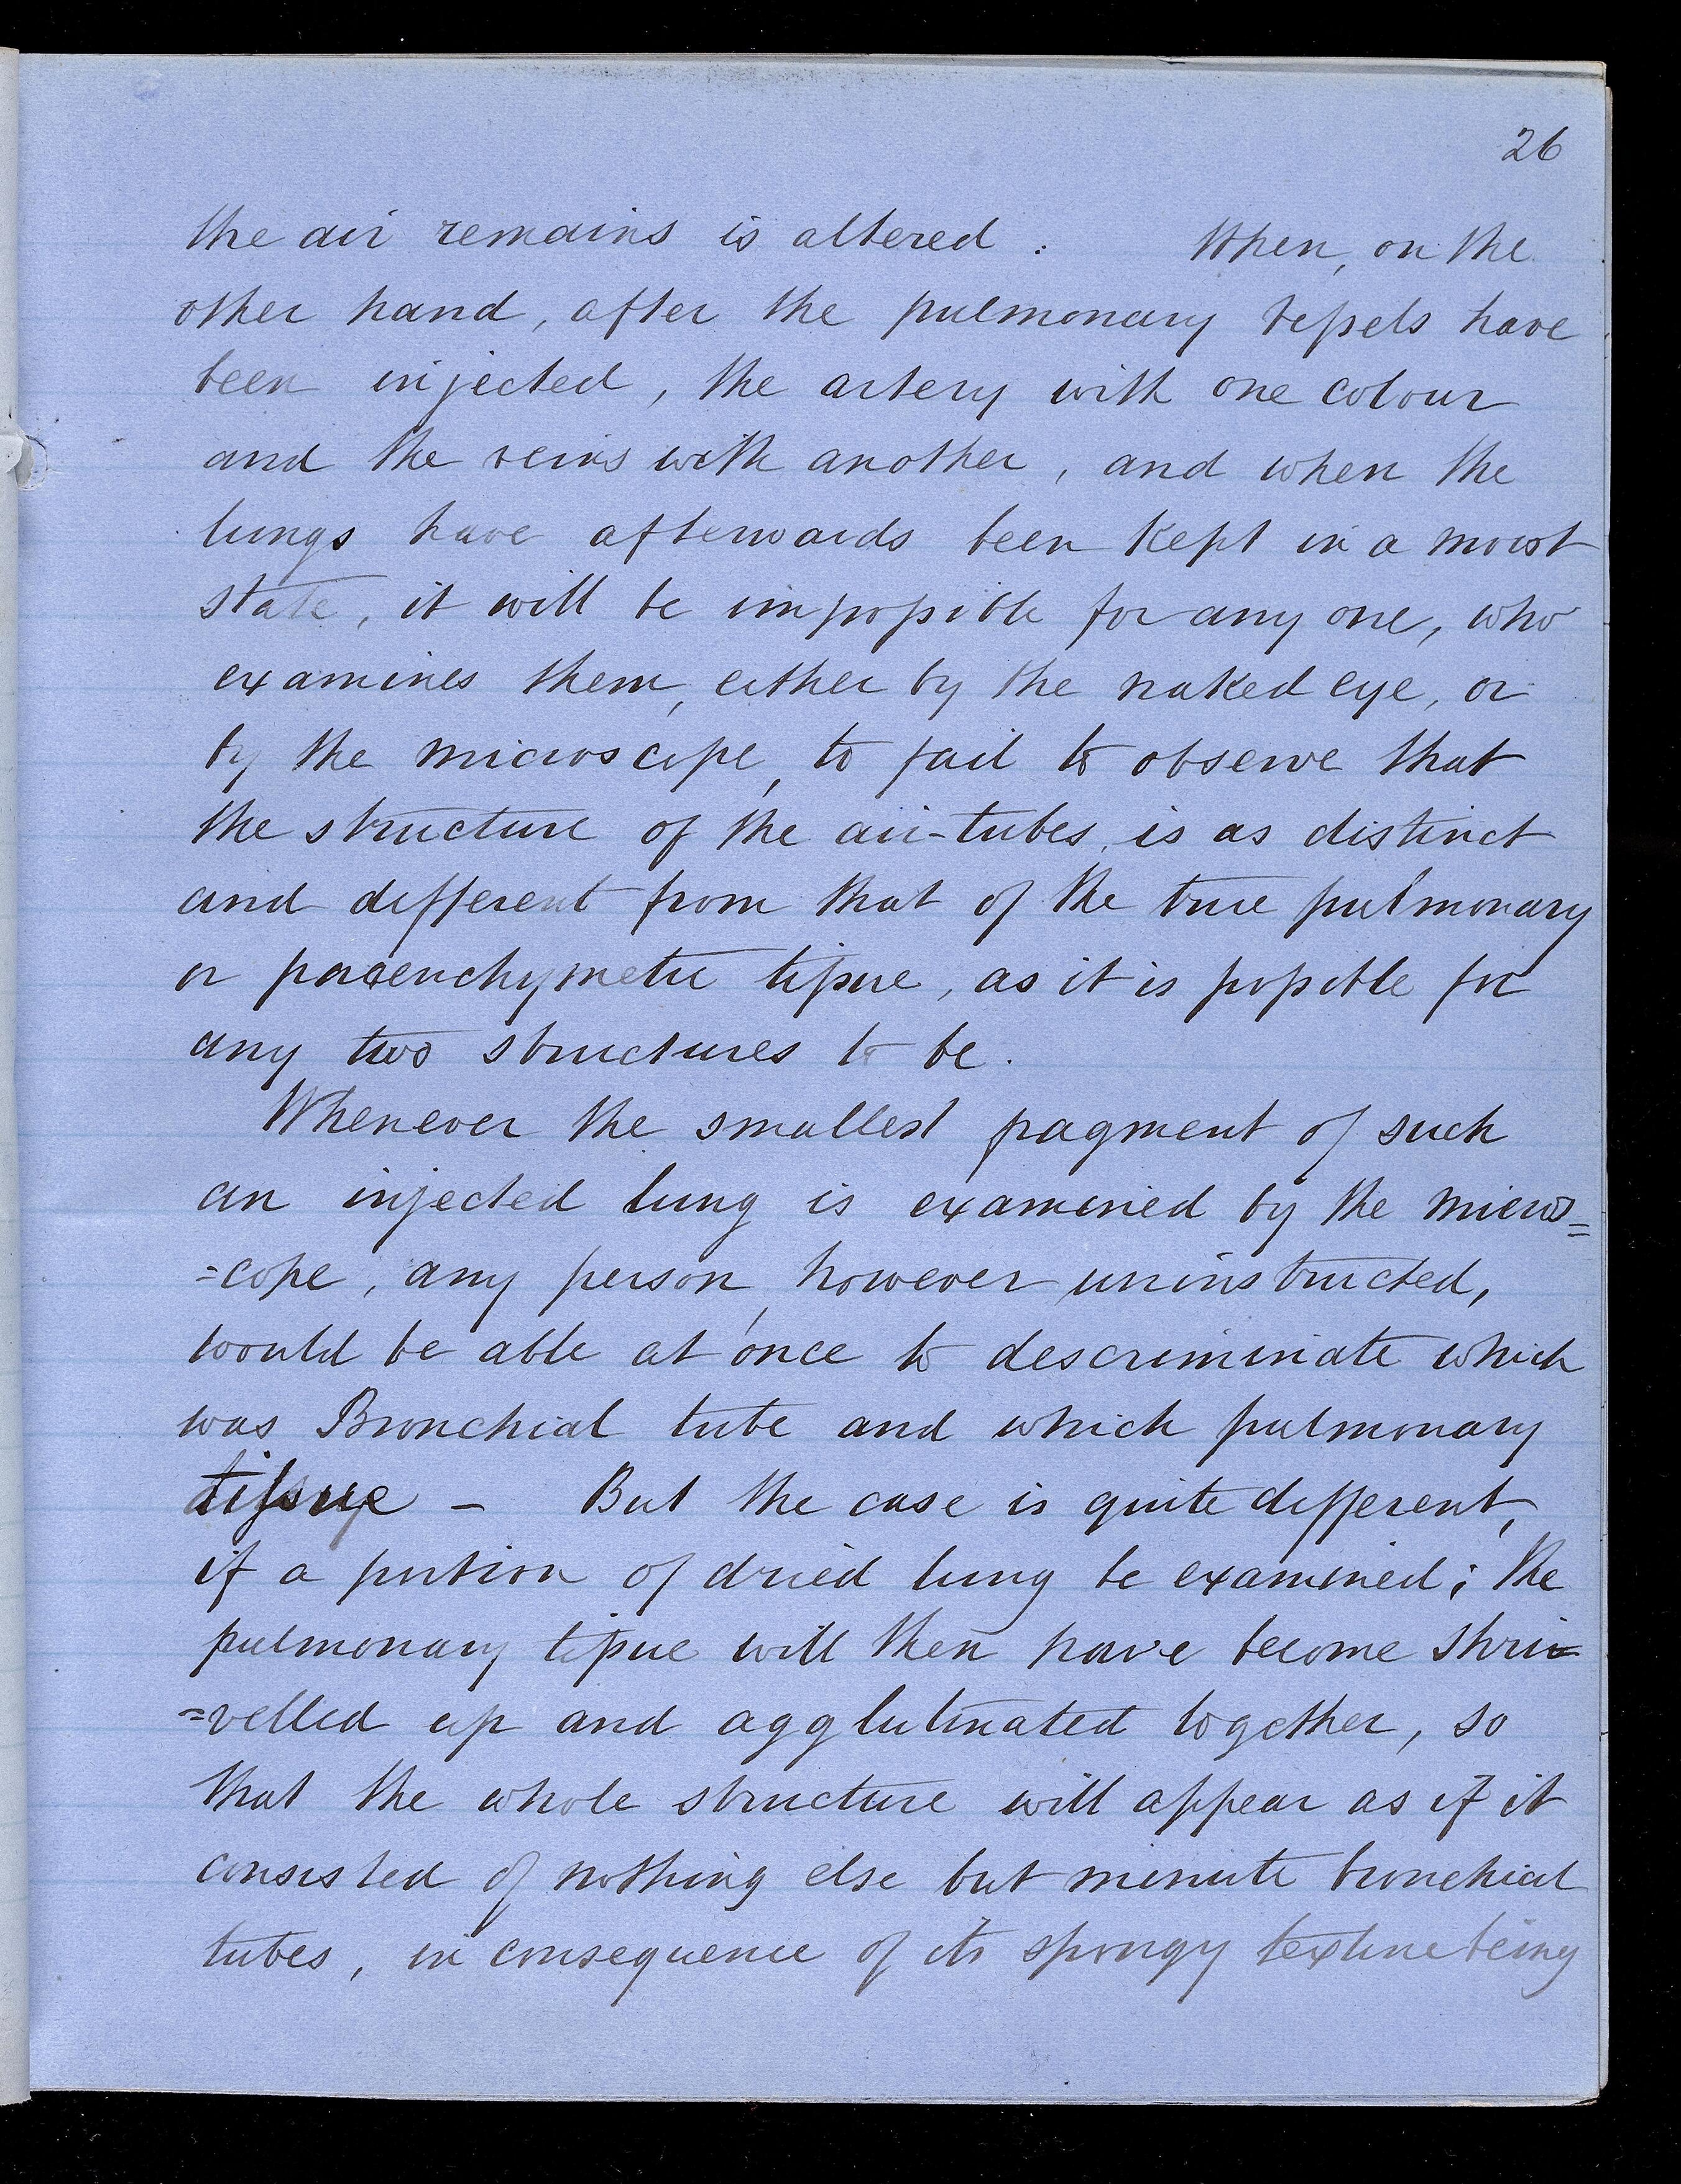 26
the air remains is altered : When, on the
other hand, after the pulmonary vessels have
been injected, the artery with one colour
and the veins with another, and when the
lungs have afterwards been kept in a moist
state, it will be impossible for any one, who
examines them, either by the naked eye, or
by the microscope, to fail to observe that
the structure of the air-tubes, is as distinct
and different from that of the true pulmonary
or parenchymetic tissue, as it is possible for
any two structures to be.
Whenever the smallest fragment of such
an injected lung is examined by the micros=
=cope, any person, however uninstructed,
would be able at once to descriminate which
was Bronchial tube and which pulmonary
tissue – But the case is quite different,
if a portion of dried lung be examined; the
pulmonary tissue will then have become shri=
=velled up and agglutinated together, so
that the whole structure will appear as if it
consisted of nothing else but minute bronchial
tubes, in consequence of its spongy texture being